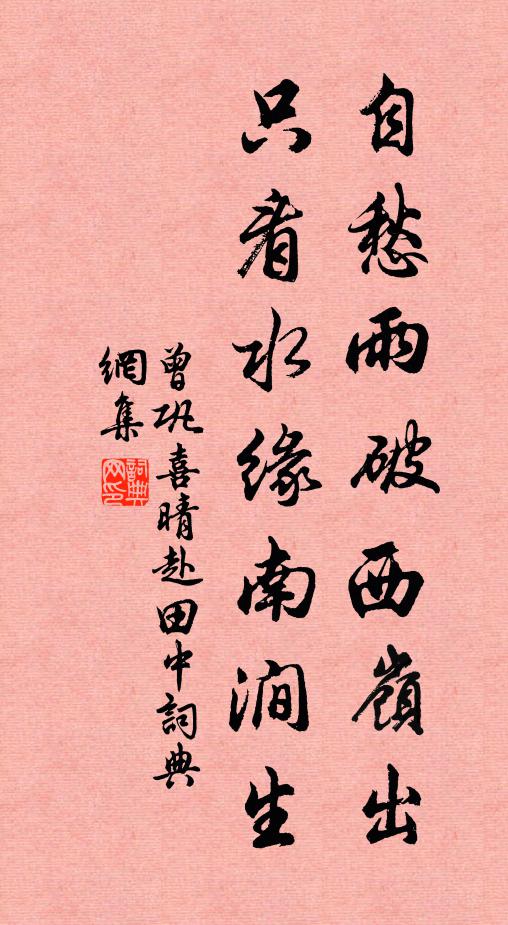 自愁雨破西嶺出
只看水緣南澗生
曾鞏喜晴赴田中詞典
網集
詞典網印